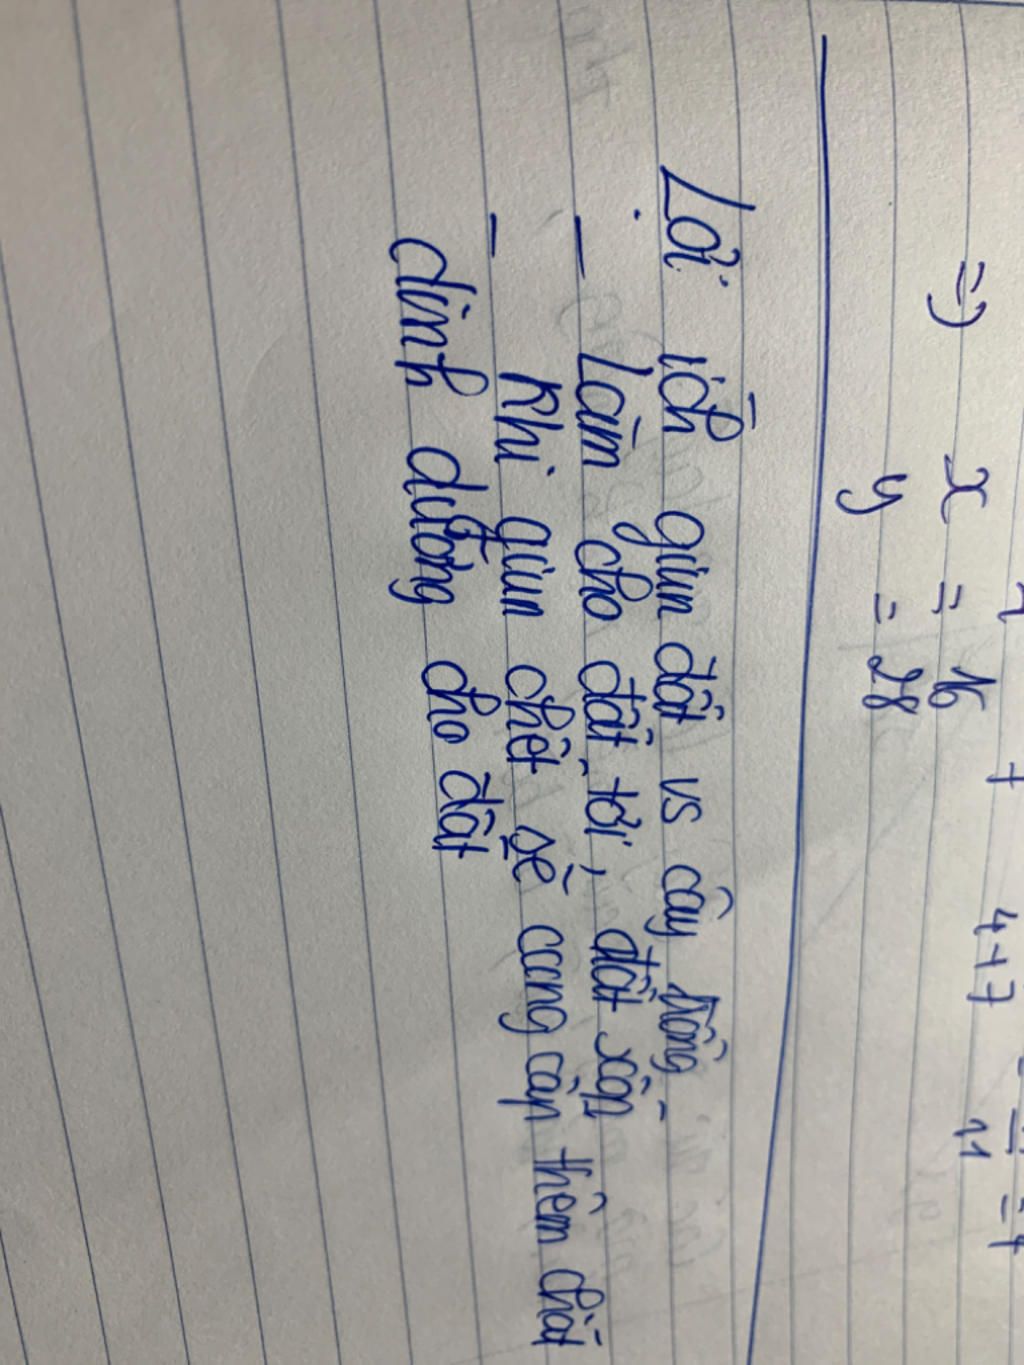 4+7 11
=> x = 16
y = 28
Lợi ích giun đất vs cây trồng
- Làm cho đất tơi, đất xốp
- Khi giun chết sẽ cung cấp thêm chất
dinh dưỡng cho đất